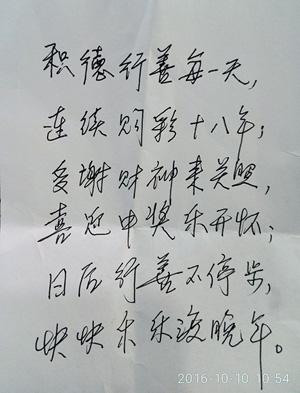 积德行善每一天,
连续购彩十八年;
多谢财神来关照,
喜迎中奖乐开怀;
日后行善不停步,
快快乐乐渡晚年。
2016-10-10 10:54